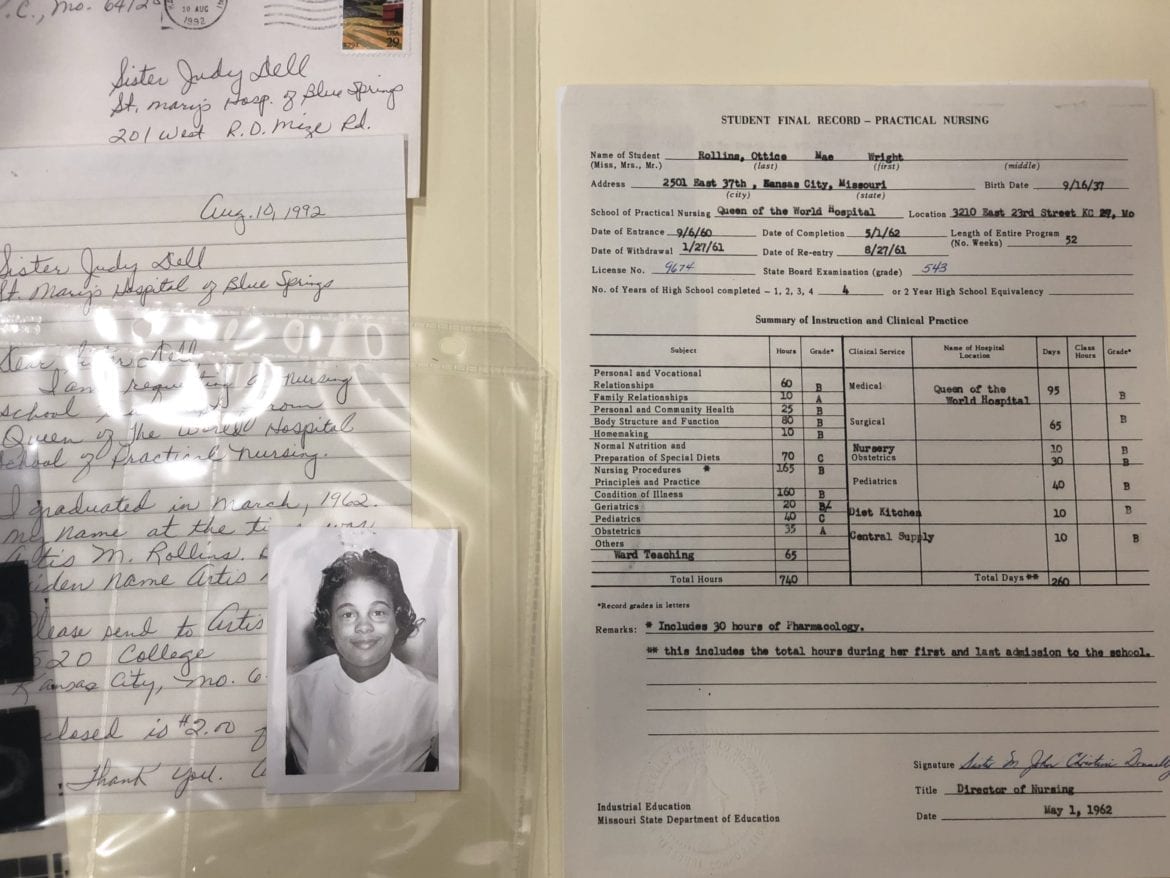 C., Mo. 6412
10 AUG
1992
USA
29
Sister Judy Dell
St. Mary's Hosp. of Blue Springs
201 West R.D. Mize Rd.
Aug. 10, 1992
Sister Judy Dell
St. Mary's Hospital of Blue Springs
Dear Sister Dell
I am requesting a nursing
school from
Queen of The World Hospital
School of Practical Nursing.
I graduated in March, 1962.
My name at the ti was
Artis M. Rollins.
iden name Artis
Please send to Artis
520 College
Kansas City, Mo. 6
closed is $2.00
Thank you.
STUDENT FINAL RECORD – PRACTICAL NURSING
Name of Student Rollins, Ottice Mae Wright
(Miss, Mrs., Mr.) (last) (first) (middle)
Address 2501 East 37th , Kansas City, Missouri Birth Date 9/16/37
(city) (state)
School of Practical Nursing Queen of the World Hospital Location 3210 East 23rd Street KC 27, Mo
Date of Entrance 9/6/60 Date of Completion 5/1/62 Length of Entire Program
(No. Weeks) 52
Date of Withdrawal 1/27/61 Date of Re-entry 8/27/61
License No. 9674 State Board Examination (grade) 543
No. of Years of High School completed – 1, 2, 3, 4 4 or 2 Year High School Equivalency
Summary of Instruction and Clinical Practice
Subject Hours Grade* Clinical Service Name of Hospital Location Days Class Hours Grade*
Personal and Vocational
Relationships 60 B Medical Queen of the World Hospital 95 B
Family Relationships 10 A
Personal and Community Health 25 B
Body Structure and Function 80 B Surgical 65 B
Homemaking 10 B
Normal Nutrition and Nursery 10 B
Preparation of Special Diets 70 C Obstetrics 30 B
Nursing Procedures * 165 B
Principles and Practice Pediatrics 40 B
Condition of Illness 160 B
Geriatrics 20 B Diet Kitchen 10 B
Pediatrics 40 C
Obstetrics 35 A Central Supply 10 B
Others
Ward Teaching 65
Total Hours 740 Total Days ** 260
*Record grades in letters
Remarks: * Includes 30 hours of Pharmacology.
** this includes the total hours during her first and last admission to the school.
Signature Sister M. John Christine Donnelly
Title Director of Nursing
Date May 1, 1962
Industrial Education
Missouri State Department of Education